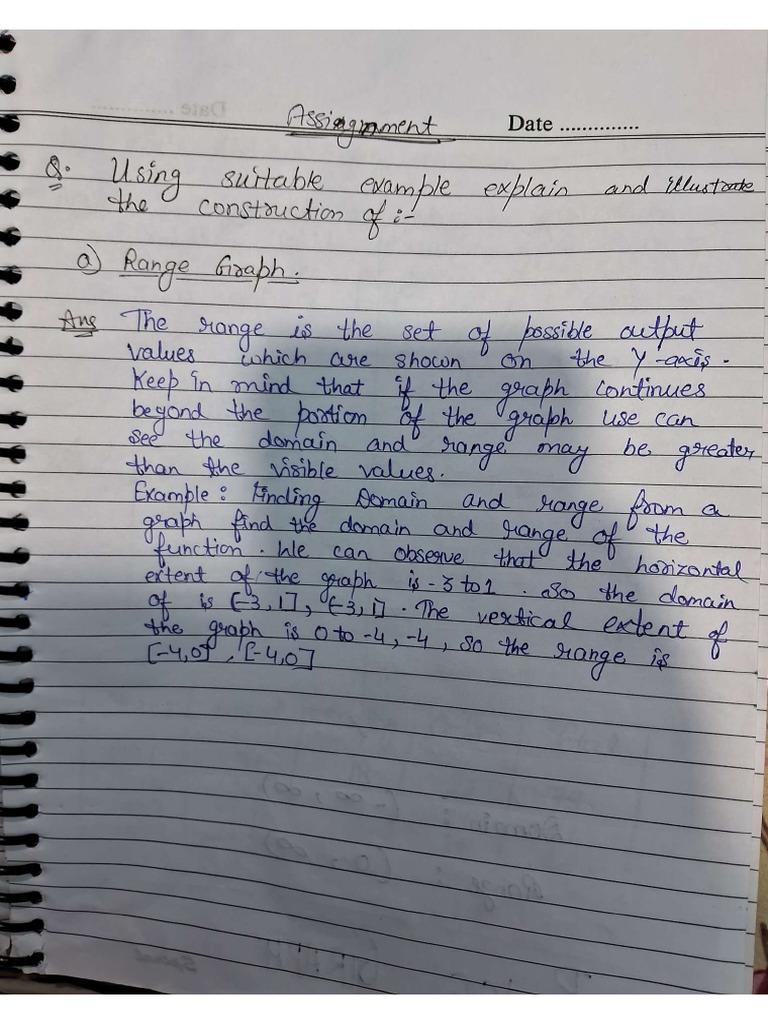 Assignment Date ..............
Q. Using suitable example explain and illustrate
the construction of :-
a) Range Graph.
Ans The range is the set of possible output
values which are shown on the Y-axis.
Keep in mind that if the graph continues
beyond the portion of the graph use can
see the domain and range may be greater
than the visible values.
Example: Finding Domain and range from a
graph find the domain and range of the
function. We can observe that the horizontal
extent of the graph is -3 to 1. So the domain
of is (-3, 1], (-3, 1]. The vertical extent of
the graph is 0 to -4, -4, so the range is
[-4,0], [-4,0]